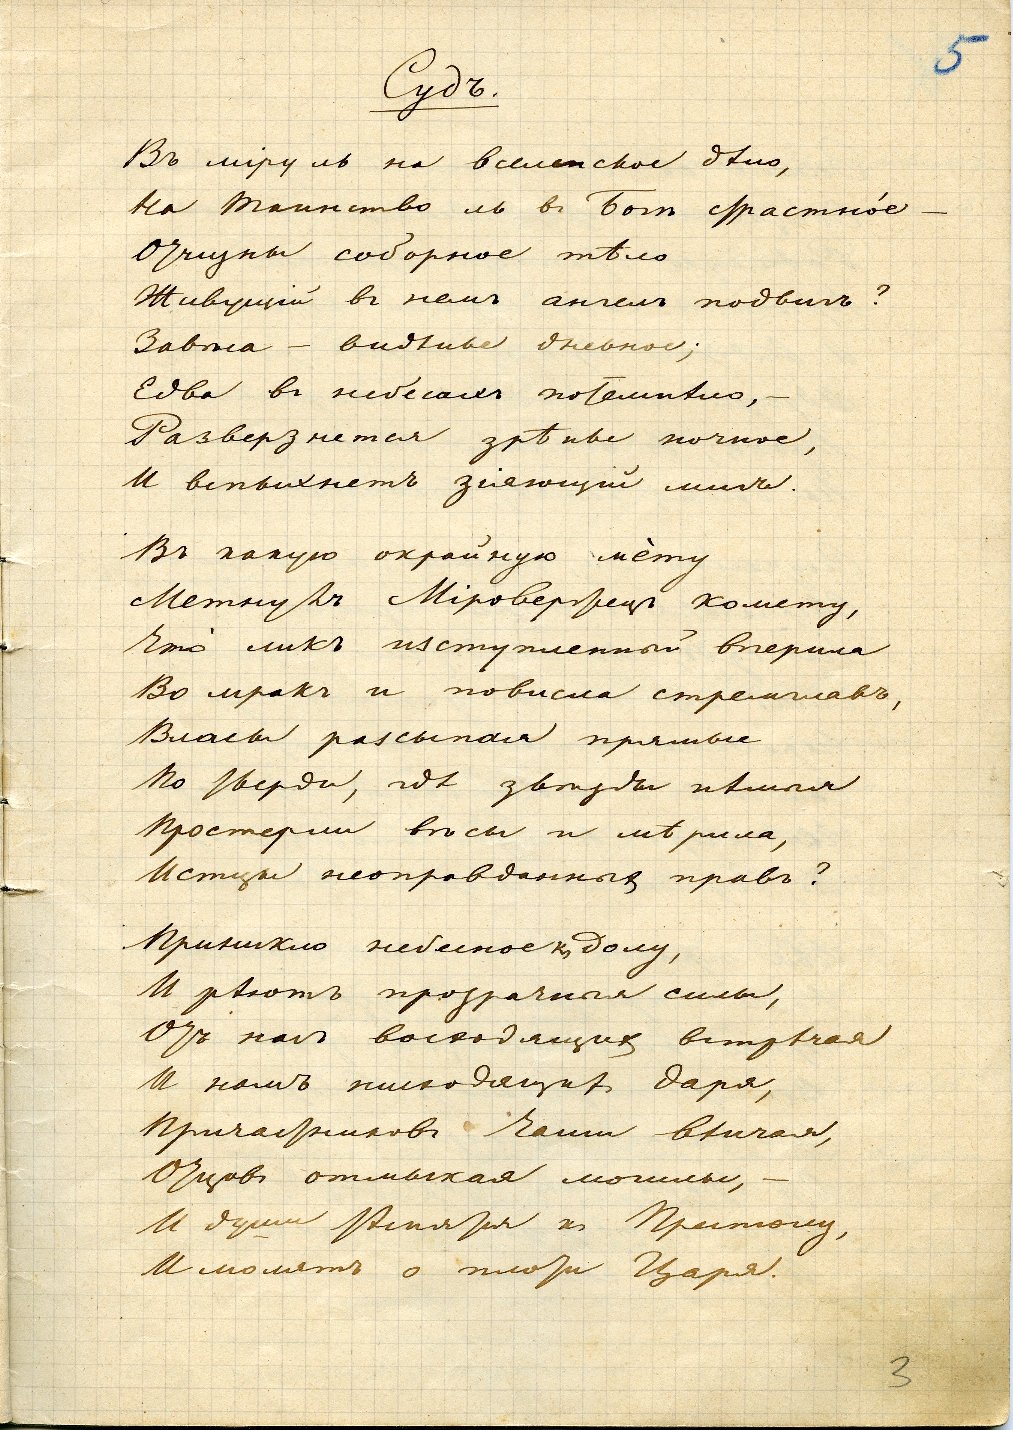 5
Судъ.
Въ міру ль на вселенское дѣло,
На Таинство ль въ Богѣ страстно́е —
Отчизны соборное тѣло
Живущій въ немъ ангелъ подвигъ?
Завѣса — видѣнье дневное;
Едва въ небесахъ потемнѣло, —
Разверзнется зрѣнье ночное,
И вспыхнетъ зіяющій мигъ.
Въ какую окрайную мѐту
Метнулъ Міровержецъ комету,
Что̀ ликъ изступленный вперила
Во мракъ и повисла стремглавъ,
Власы разсыпая прямые
По тверди, гдѣ звѣзды нѣмыя
Простерли вѣсы и мѣрила,
Истцы неоправданныхъ правъ?
Приникло небесное къ долу,
И рѣютъ прозрачныя силы,
Отъ насъ восходящихъ встрѣчая
И намъ нисходящихъ даря,
Причастниковъ Чаши вѣнчая,
Отцовъ отмыкая могилы, —
И души тѣснятся къ Престолу,
И молятъ о плоти Царя.
3